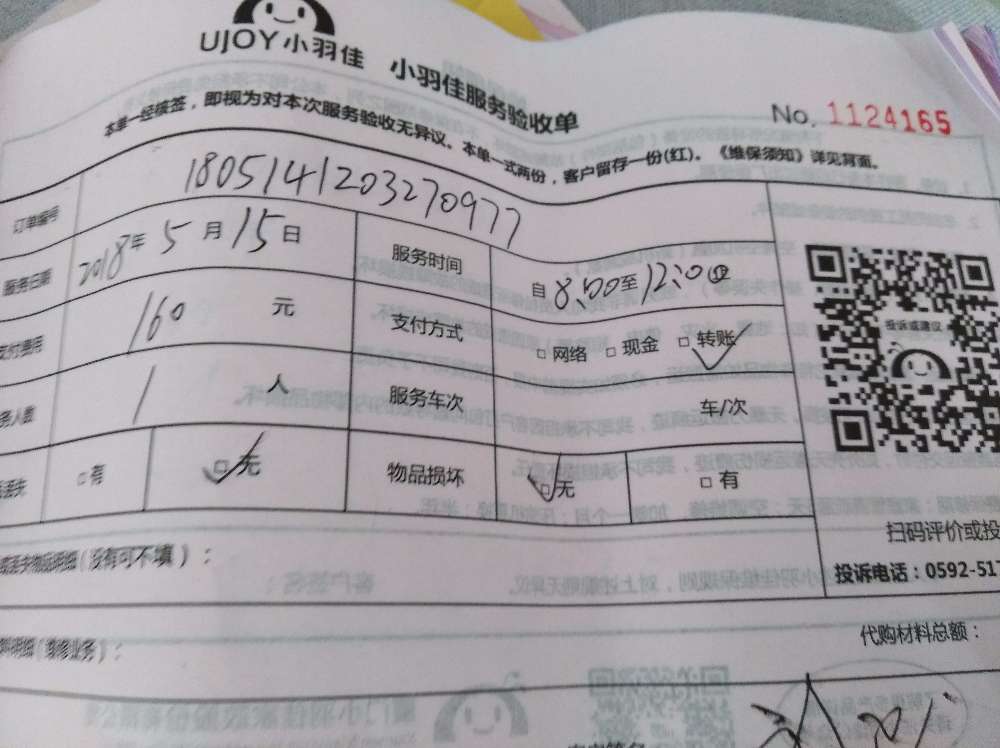 UJOY小羽佳 小羽佳服务验收单
No. 1124165
本单一经核签，即视为对本次服务验收无异议。本单一式两份，客户留存一份(红)。《维保须知》详见背面。
订单编号 1805141203270977
服务日期 2018年5月15日 服务时间 自8:00至12:0止
支付费用 160 元 支付方式 □网络 □现金 □转账
务人数 1 人 服务车次 车/次
丢失 □有 □无 物品损坏 □无 □有
投诉或建议
扫码评价或投
丢失物品明细(没有可不填)：
投诉电话：0592-517
明细(维修业务)：
代购材料总额：